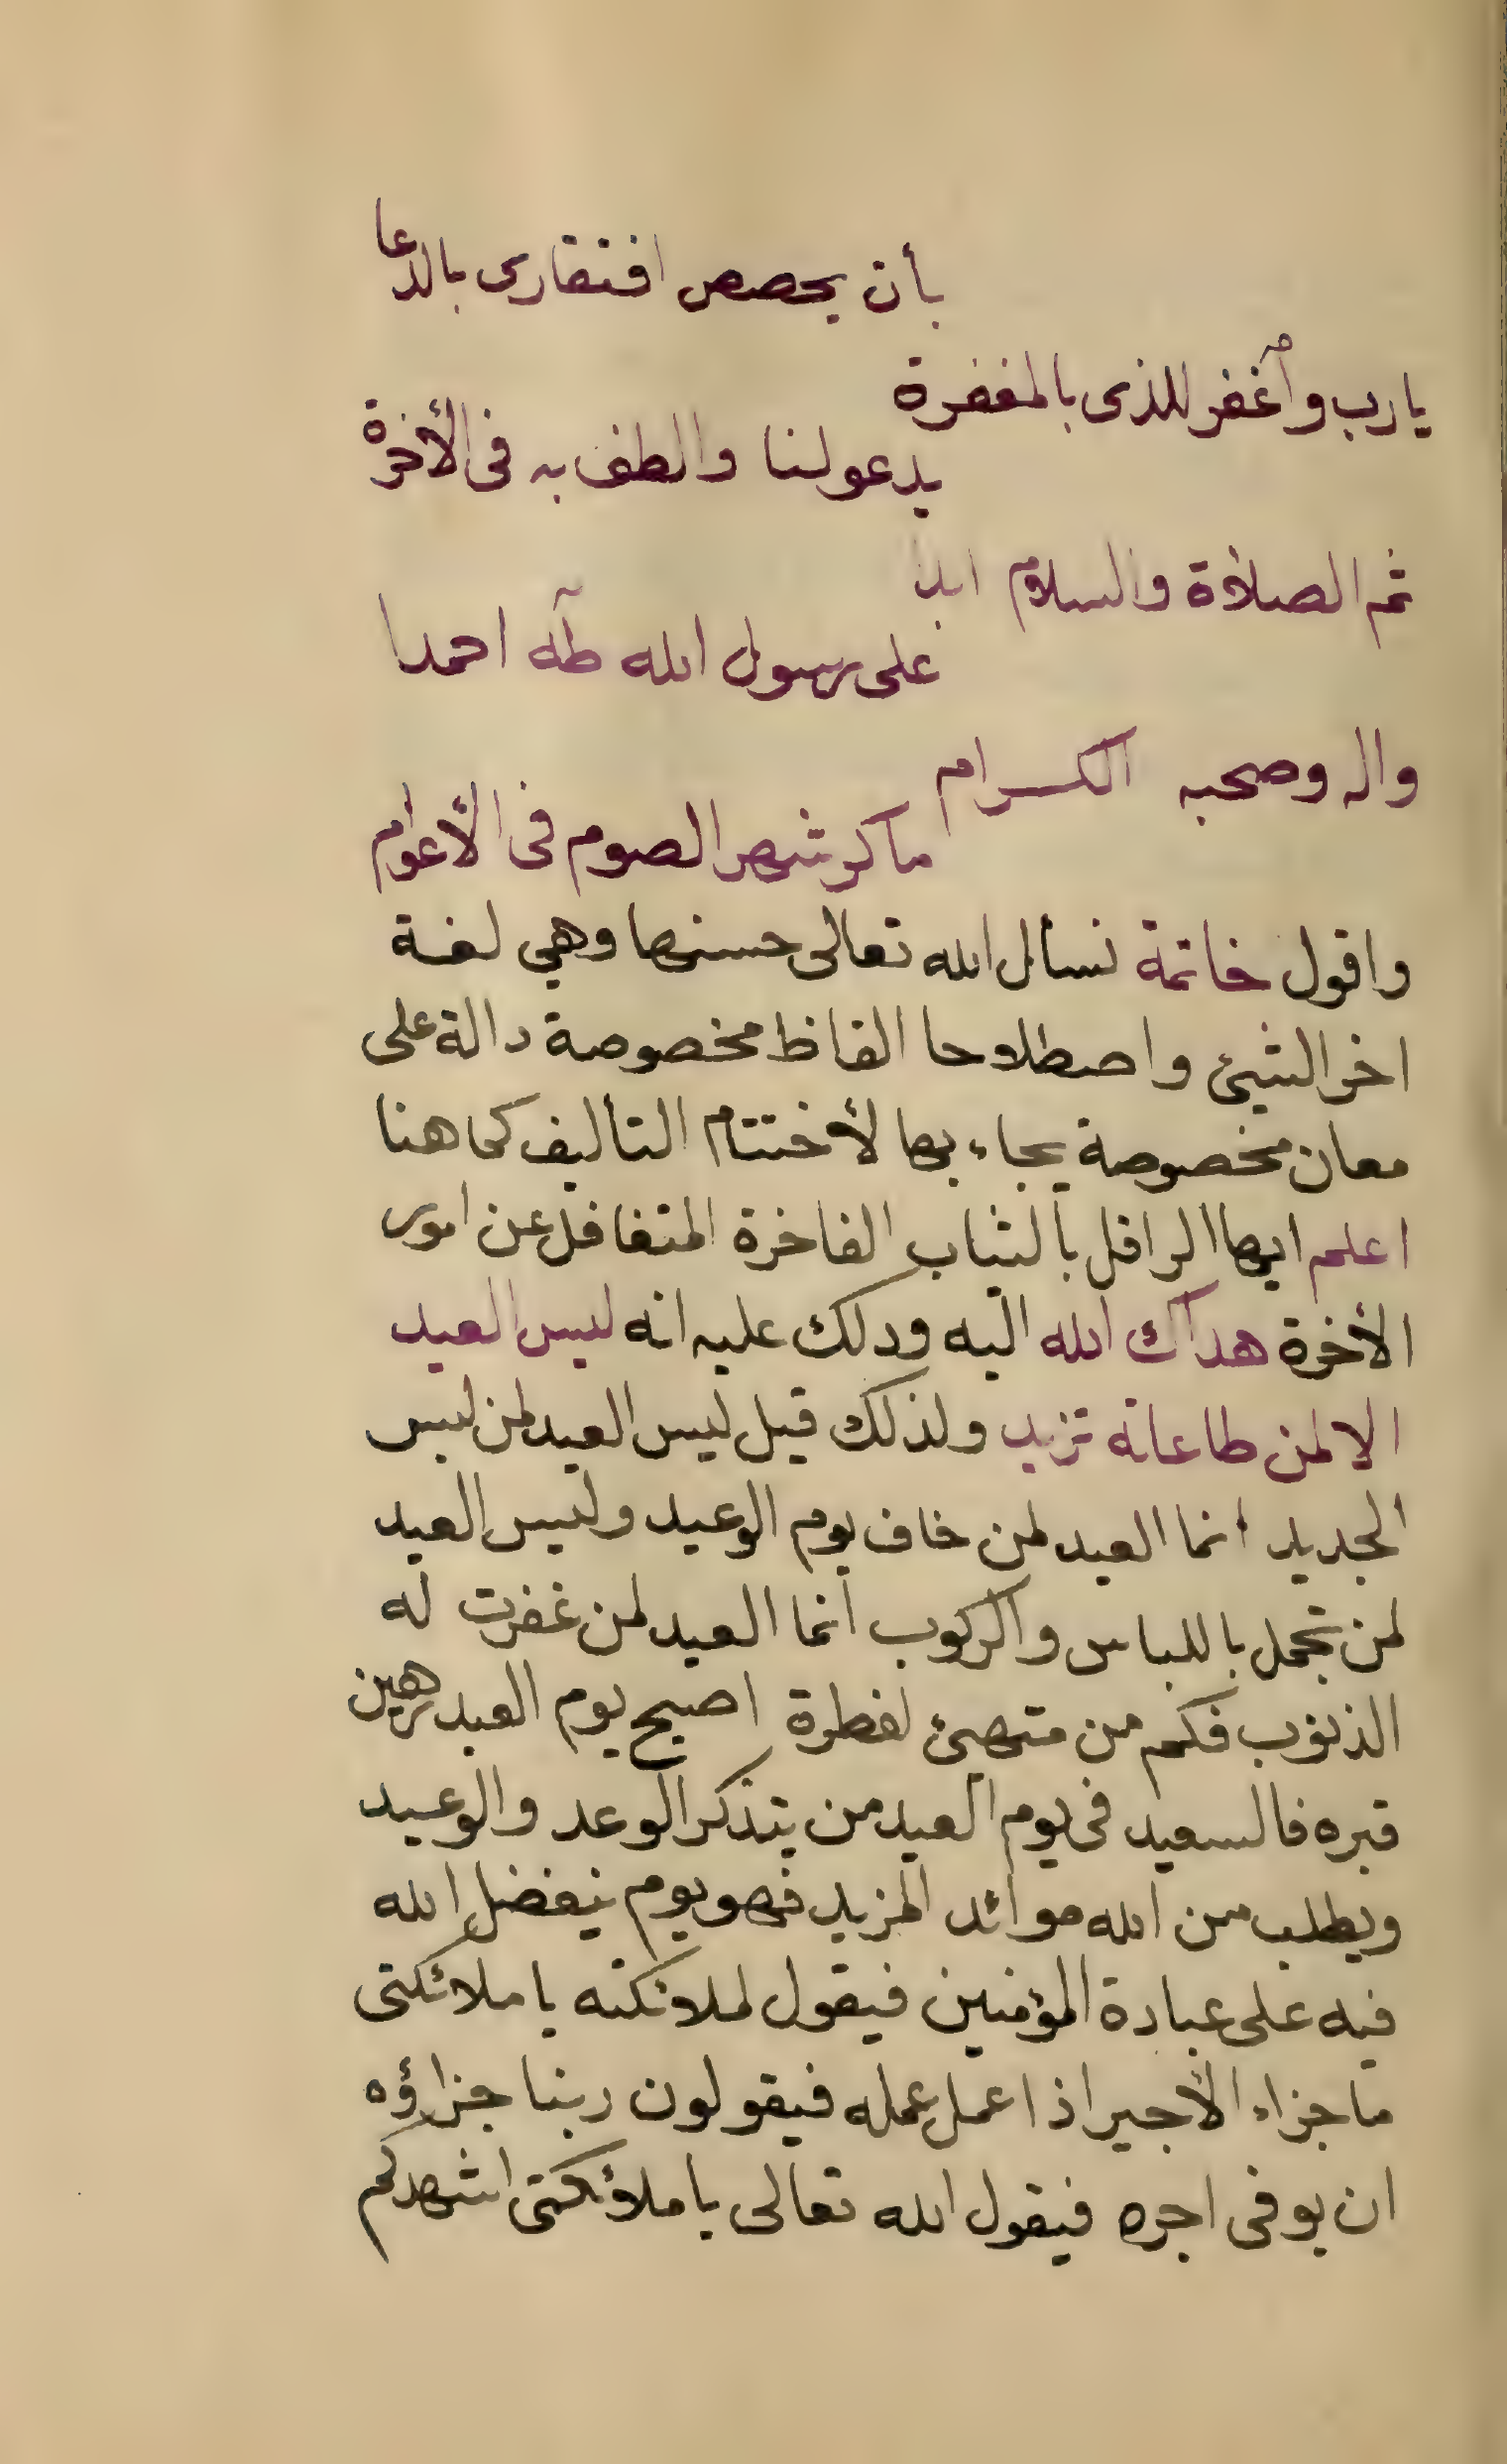 بأن يحصص افتقارى بالدعا
يارب وأغفر للذى بالمغفرة
يدعولنا والطف به فى الأخرة
ثم الصلاة والسلام ابدا
على رسول الله طآه احمدا
واله وصحبه الكرام
ماكر شهر الصوم فى الأعوام
واقول خاتمة نسأل الله تعالى حسنها وهي لغة
اخر الشيئ واصطلاحا الفاظ مخصوصة دالة على
معان مخصوصة يجاء بها لأختتام التأليف كما هنا
اعلم ايها الرافل بالثياب الفاخرة المتغافل عن امور
الأخرة هداك الله اليه ودلك عليه انه ليس العيد
الا لمن طاعاته تزيد ولذلك قيل ليس العيد لمن لبس
الجديد انما العيد لمن خاف يوم الوعيد وليس العيد
لمن تجمل باللباس والركوب انما العيد لمن غفرت له
الذنوب فكم من متهيئ لفطرة اصبح يوم العيد رهين
قبره فالسعيد فى يوم العيد من يتذكر الوعد والوعيد
ويطلب من الله موائد المزيد فهو يوم يتفضل الله
فيه على عبادة المؤمنين فيقول لملائكته يا ملائكتى
ما جزاء الأجير اذا عمل عمله فيقولون ربنا جزاؤه
ان يوفى اجره فيقول الله تعالى يا ملائكتى اشهدكم